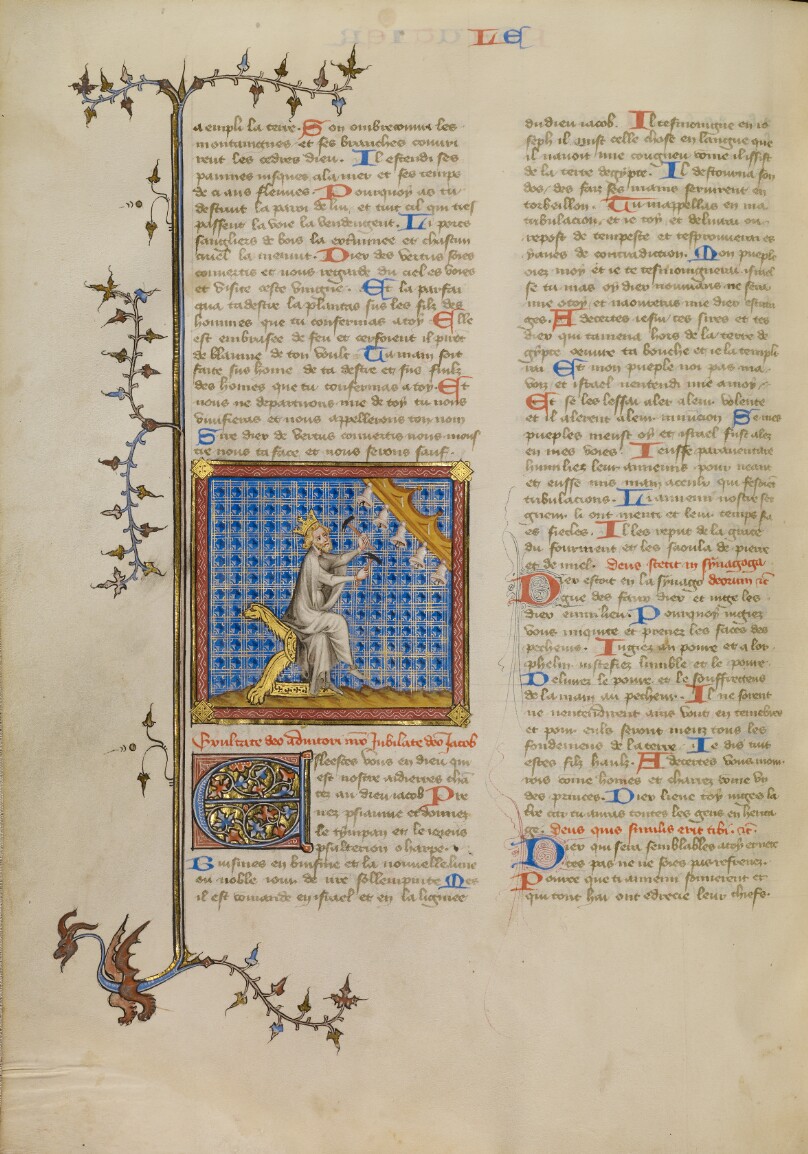 LE
a empli la terre. Son ombre couvri les
montaingnes et ses branches couvri
rent les cedres dieu. Il estendi ses
paumes jusques a la mer et ses
de ci aus fleuves. Pourquoy as tu
destruit la paroi de lui, et tuit cil qui tres
passent la voie la vendengent. Li pors
sanglers de bois la et chascun
cruel la menuit. Dieu des vertus soies
convertis et nous regarde du ciel es voies
et visite ceste vingne. Et la parfai
qua ta destre la plantas sus les filz des
hommes que tu confermas a toy. Elle
est embrasee de feu et
de blasme de ton voult. Ta main soit
faite sus home de ta destre et sus filz
des homes que tu confermas a toy. Et
nous ne departirons mie de toy tu nous
vivifieras et nous appellerons ton nom
Sire dieu de vertus convertis nous mons
tre nous ta face et nous serons sauf.
Exultate deo adiutori nro Jubilate deo Jacob
Esleesces vous en dieu qui
est nostre aidierres chan
tez au dieu iacob Pre
nez psiaume et donnez
le tympan et le
psalterion o harpe.
Buisines en buisine et la nouvelle lune
ou noble iour de vre sollempnite Mes
il est comande en israel et en la lignnee
du dieu iacob. Il tesmoingne en io
seph il mist celle chose en langue que
il navoit mie congneu come il issist
de la terre degypte. Il destourna son
dos des fais ses mains servirent en
torbeillon. Tu mappellas en ma
tribulacion, et ie toy et delivrai ou
repost de tempeste et tesprouverai es
yaues de contradiction. Mon pueple
oiez moy et ie te tesmoigneray israel
se tu mas oy dieu nouviaus ne sera
mie o toy et naoureras mie dieu estran
ges. Adecertes ie sui tes sires et tes
dieu qui tamena hors de la terre de
gypte oeuvre ta bouche et ie la templi
rai Et mon pueple noi pas ma
voiz et israel nentendi mie a moy
Et se les lessai aler a leur volente
et il alerent a leur Se mes
pueples meust oy et israel fust alez
en mes voies. Ieusse paraventure
humiliez leur anemis pour neant
et eusse mis main a ceulz qui fesoient
tribulacions. Li anemi nostre sei
gneur li ont menti et leur temps sera
es siecles. Il les reput de la graisse
du fourment et les saoula de pierre
et de miel. Deus stetit in synagoga
Dieu estoit en la synago deorum etc
gue des faux dieu et iuge les
dieu enmi lieu. Pourquoy iugiez
vous iniquite et prenez les faces des
pecheurs. Iugiez au povre et a lor
phelin iustefiez lumble et le povre.
Delivrez le povre et le souffreteus
de la main au pecheur. Il ne sorent
ne nentendirent ains vont en tenebres
et pour eulz seront meuz tous les
fondemens de la terre. Ie dis tuit
estes filz haulz. Adecertes vous mour
rois come homes et charrez come un
des princes. Dieu lieve toy iuges la
terre car tu auras toutes les gens en herita
ge. Deus quis similis erit tibi. etc.
Dieu qui sera semblables a toy et ne te
tees pas ne ne soies pas refrenez.
Pource que ti anemi sonnerent et
qui tont hai ont edrecie leur chiefs.